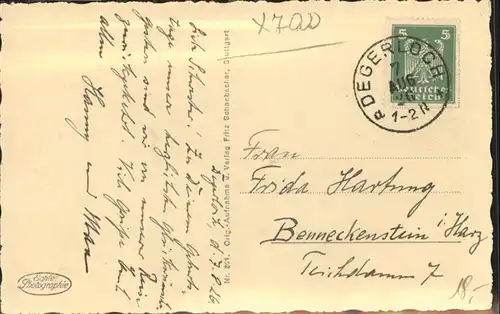 X7QD
Degerloch, d. 7.8.26
Liebe Schwester! Zu Deinem Geburts-
tage unsere herzlichste Glückwünsche.
Gestern sind wir von unserer Reise
zurückgekehrt. Viele Grüße Euch
allen Hanny und Max
Nr. Orig.-Aufnahme u. Verlag Fritz Schabacher, Stuttgart
5 5
Deutsches
Reich
DEGERLOCH
7
AUG
1-2 N
Frau
Frida Hartung
Benneckenstein i. Harz
Teichdamm 7
18,-
Echte
Photographie